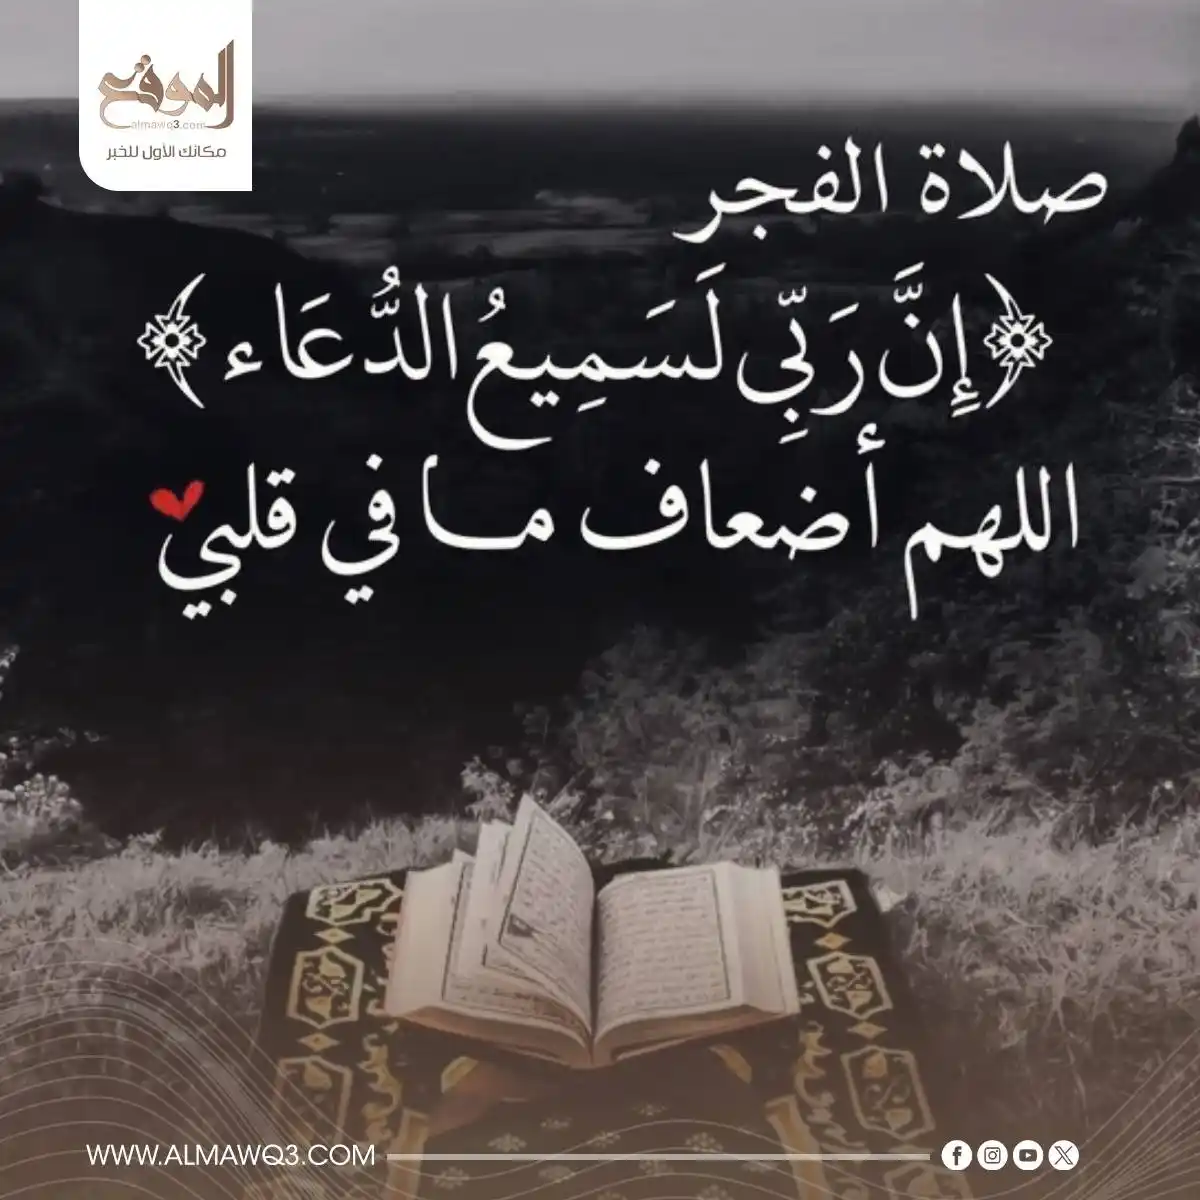 الموقع
almawq3.com
مكانك الأول للخبر
صلاة الفجر
﴿إِنَّ رَبِّي لَسَمِيعُ الدُّعَاء﴾
اللهم أضعاف ما في قلبي
WWW.ALMAWQ3.COM